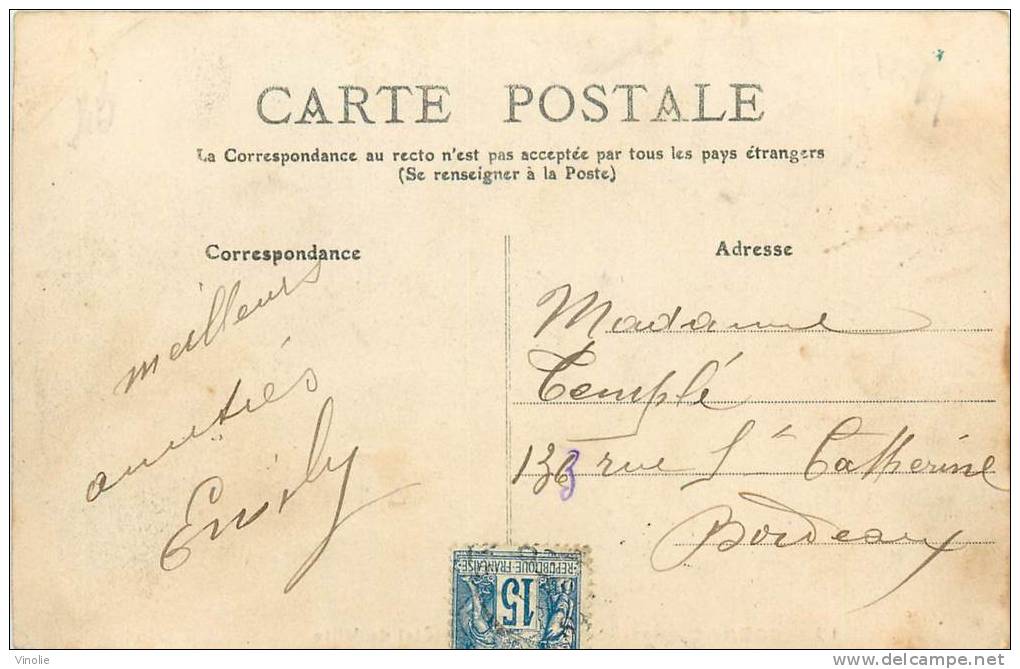 CARTE POSTALE
La Correspondance au recto n'est pas acceptée par tous les pays étrangers
(Se renseigner à la Poste)
Correspondance
meilleurs
amitiés
Emily
Adresse
Madame
Templé
136 rue Ste Catherine
Bordeaux
REPUBLIQUE FRANÇAISE
15
Vinolie
delcampe.net